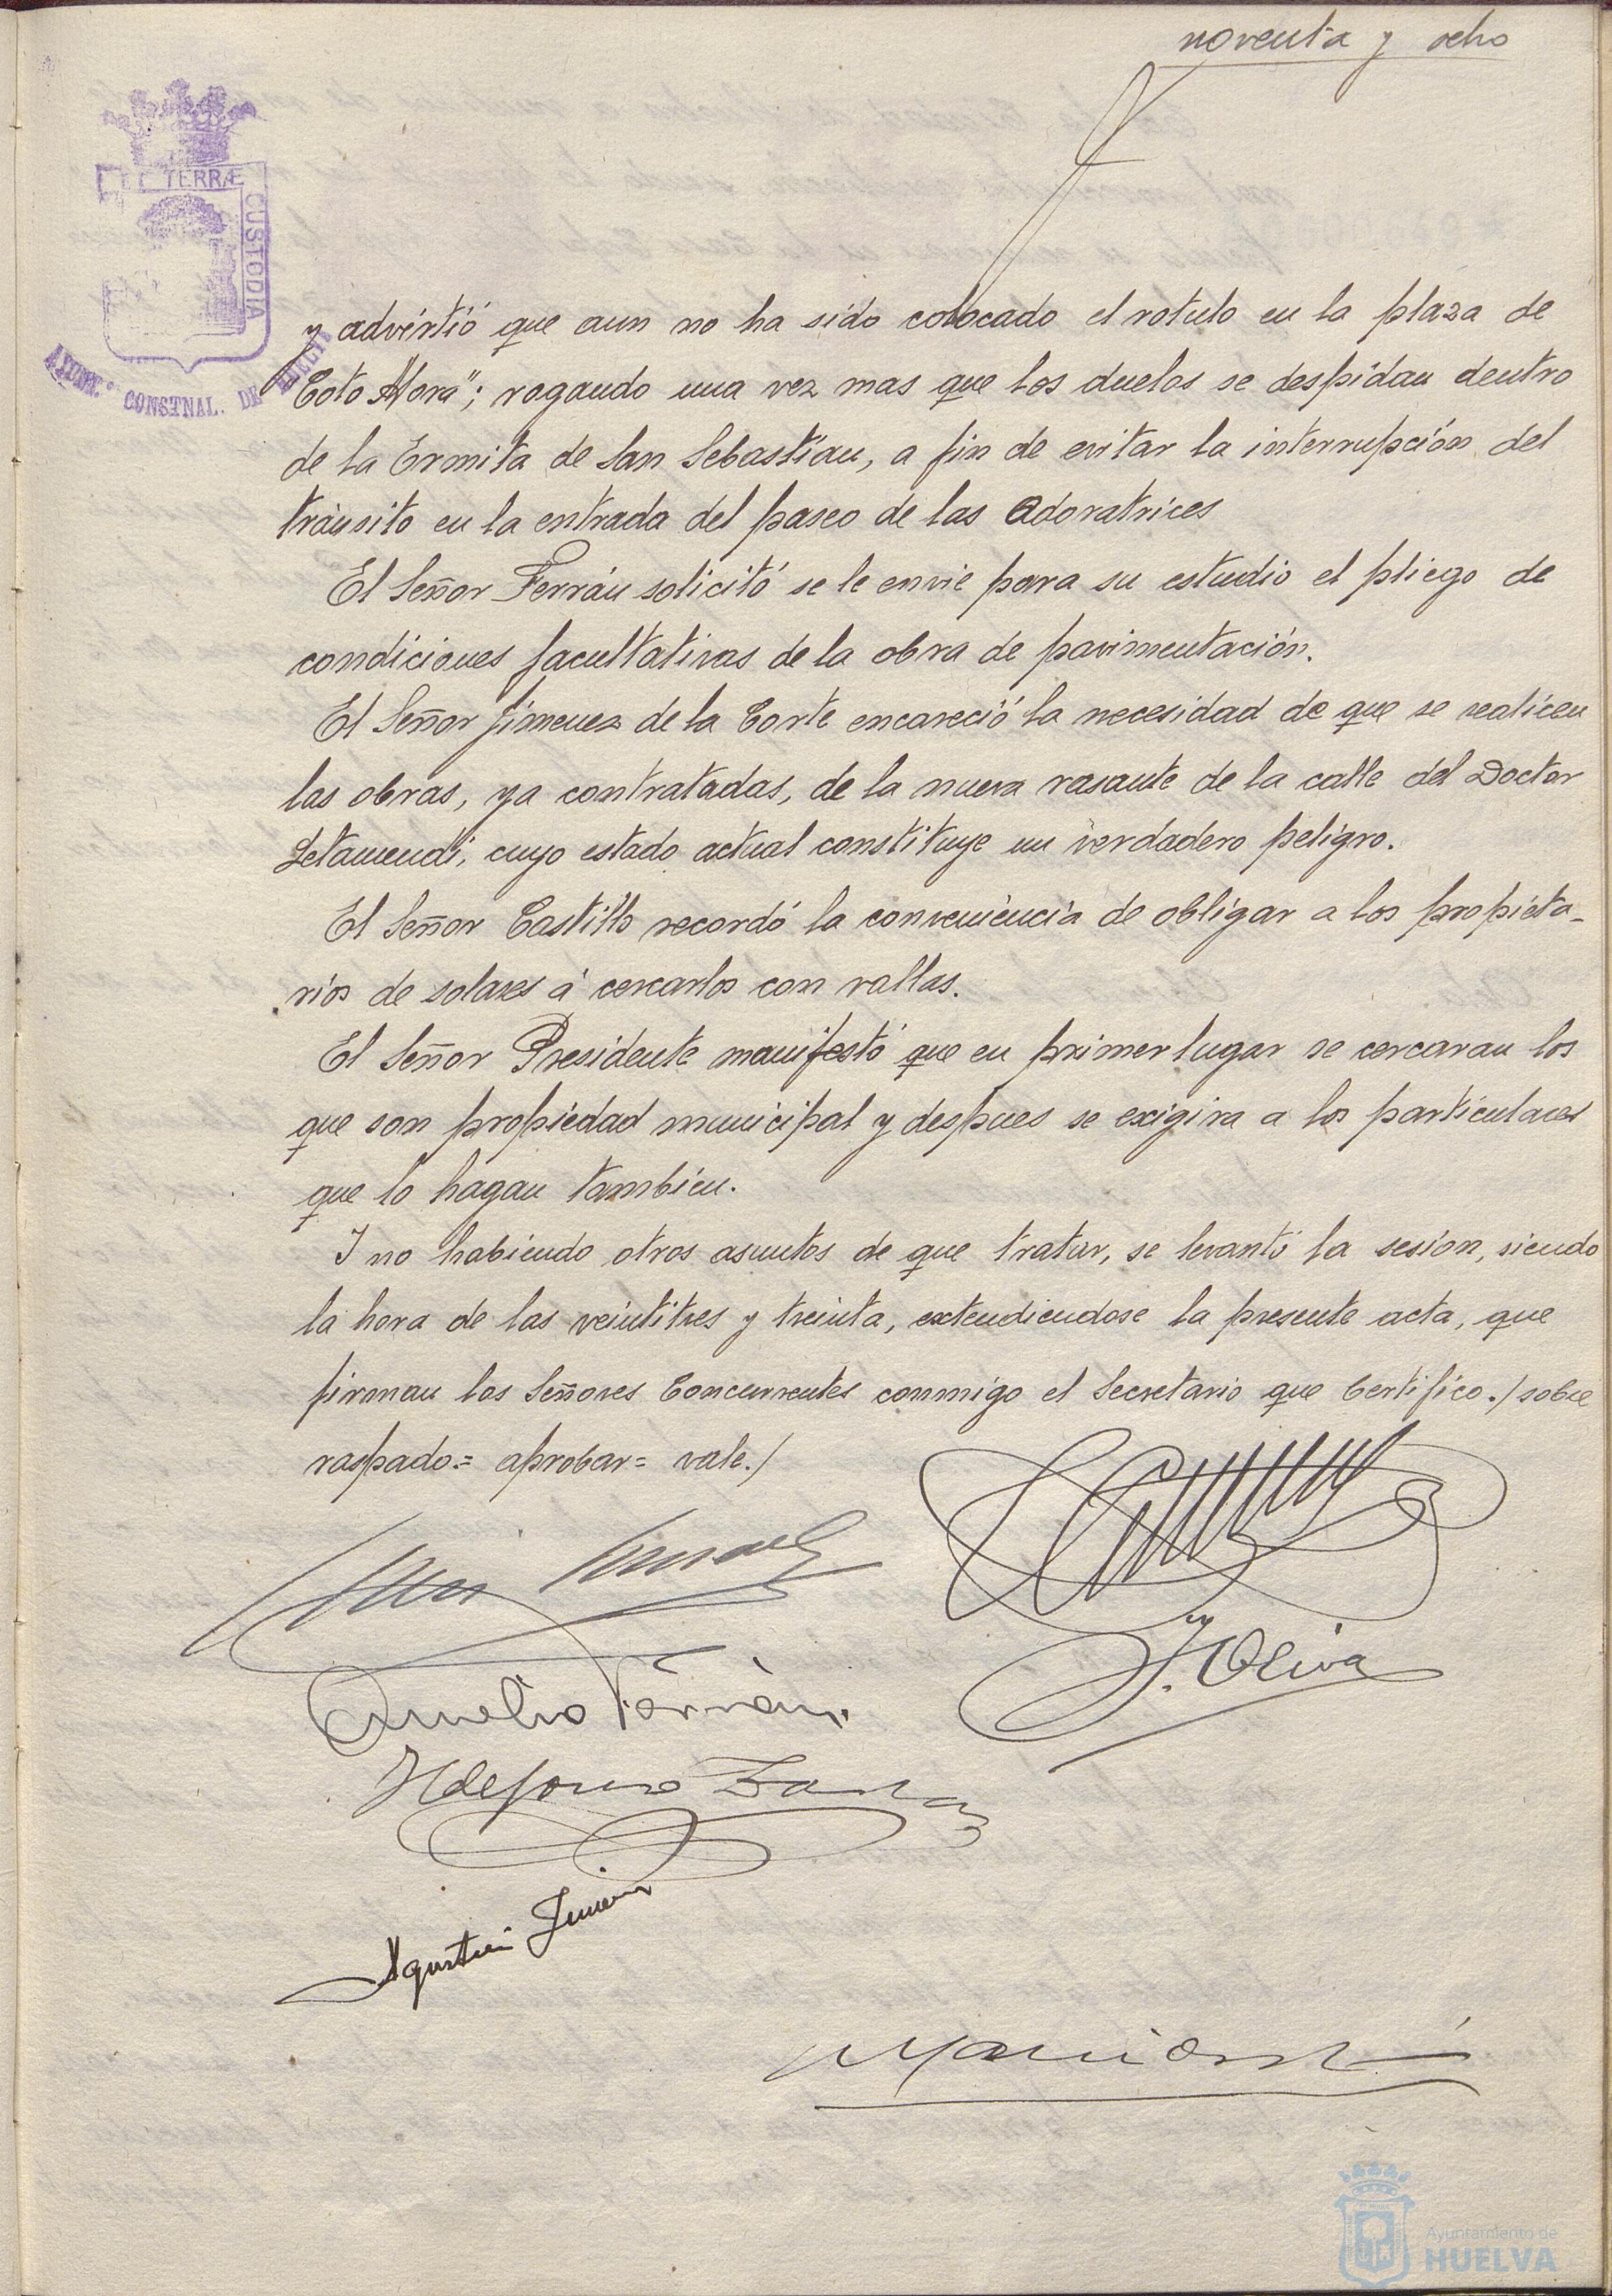 noventa y ocho
TERRÆ
CUSTODIA
AYUNM.º CONSTNAL. DE HUELVA
y advirtió que aun no ha sido colocado el rotulo en la plaza de
"Coto Mora"; rogando una vez mas que los duelos se despidan dentro
de la Ermita de San Sebastián, a fin de evitar la interrupción del
tránsito en la entrada del paseo de las Adoratrices
El Señor Ferrán solicitó se le envie para su estudio el pliego de
condiciones facultativas de la obra de pavimentación.
El Señor Jimenez de la Corte encareció la necesidad de que se realicen
las obras, ya contratadas, de la nueva rasante de la calle del Doctor
Letamendi, cuyo estado actual constituye un verdadero peligro.
El Señor Castillo recordó la conveniencia de obligar a los propieta-
rios de solares á cercarlos con vallas.
El Señor Presidente manifestó que en primer lugar se cercaran los
que son propiedad municipal y despues se exigira a los particulares
que lo hagan tambien.
Y no habiendo otros asuntos de que tratar, se levantó la sesion, siendo
la hora de las veintitres y treinta, extendiendose la presente acta, que
firman los Señores Concurrentes conmigo el Secretario que Certifico./sobre
raspado.= aprobar= vale./
J. Oliva
Aurelio Ferrán
Ildefonso
Agustin Jimenez
Ayuntamiento de
HUELVA